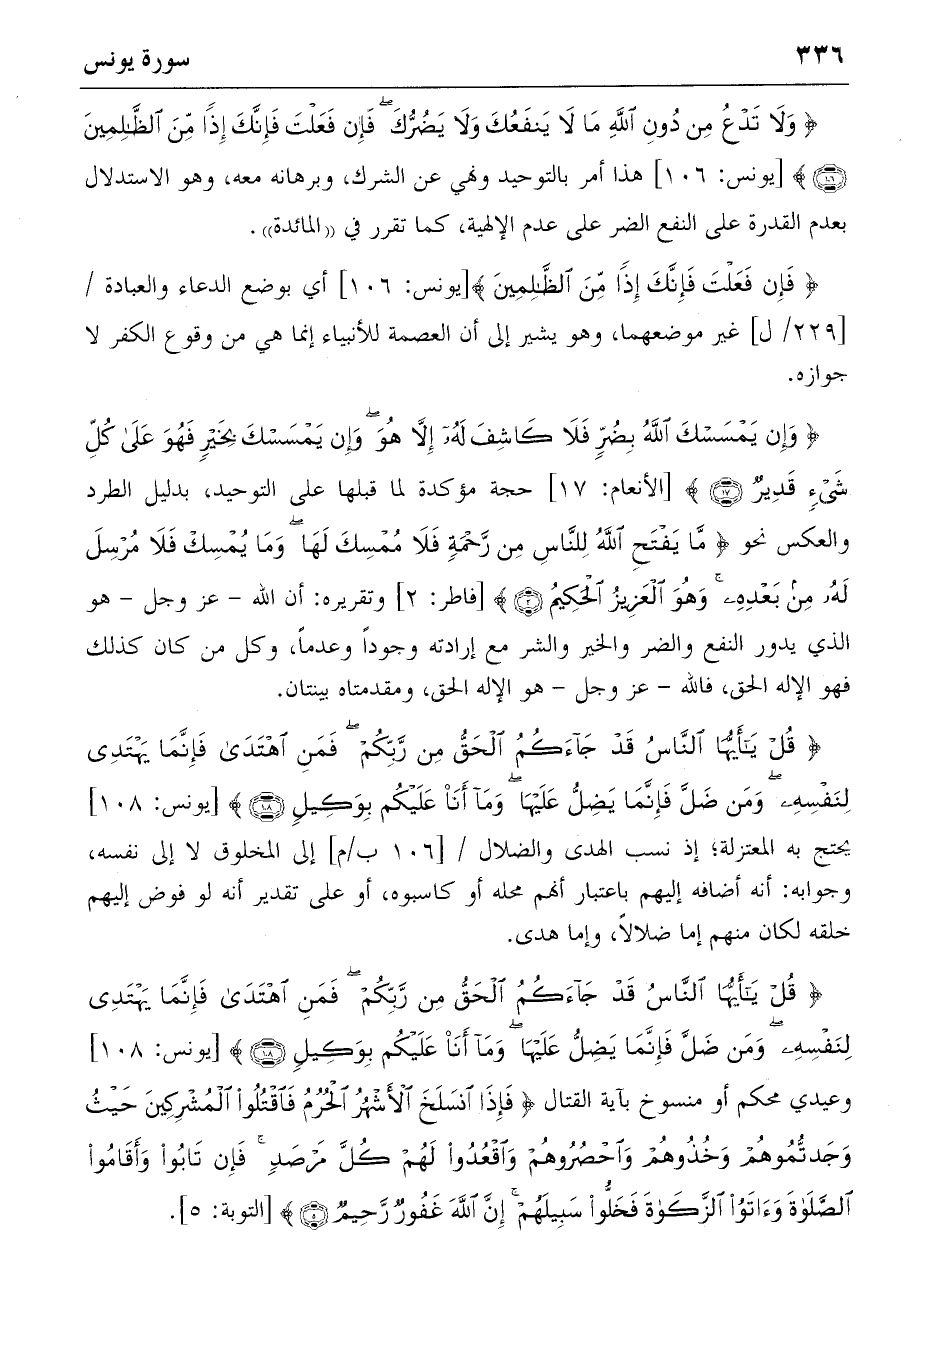 ٣٣٦ سورة يونس
﴿ وَلَا تَدْعُ مِن دُونِ ٱللَّهِ مَا لَا يَنفَعُكَ وَلَا يَضُرُّكَ ۖ فَإِن فَعَلْتَ فَإِنَّكَ إِذًا مِّنَ ٱلظَّٰلِمِينَ
۝١٠٦ ﴾ [يونس: ١٠٦] هذا أمر بالتوحيد ونهي عن الشرك، وبرهانه معه، وهو الاستدلال
بعدم القدرة على النفع الضر على عدم الإلهية، كما تقرر في ((المائدة)).
﴿ فَإِن فَعَلْتَ فَإِنَّكَ إِذًا مِّنَ ٱلظَّٰلِمِينَ ﴾[يونس: ١٠٦] أي بوضع الدعاء والعبادة /
[٢٢٩/ ل] غير موضعهما، وهو يشير إلى أن العصمة للأنبياء إنما هي من وقوع الكفر لا
جوازه.
﴿ وَإِن يَمْسَسْكَ ٱللَّهُ بِضُرٍّ فَلَا كَاشِفَ لَهُۥٓ إِلَّا هُوَ ۖ وَإِن يَمْسَسْكَ بِخَيْرٍ فَهُوَ عَلَىٰ كُلِّ
شَىْءٍ قَدِيرٌ ۝١٧ ﴾ [الأنعام: ١٧] حجة مؤكدة لما قبلها على التوحيد، بدليل الطرد
والعكس نحو ﴿ مَّا يَفْتَحِ ٱللَّهُ لِلنَّاسِ مِن رَّحْمَةٍ فَلَا مُمْسِكَ لَهَا ۖ وَمَا يُمْسِكْ فَلَا مُرْسِلَ
لَهُۥ مِنۢ بَعْدِهِۦ ۚ وَهُوَ ٱلْعَزِيزُ ٱلْحَكِيمُ ۝٢ ﴾ [فاطر: ٢] وتقريره: أن الله - عز وجل - هو
الذي يدور النفع والضر والخير والشر مع إرادته وجوداً وعدماً، وكل من كان كذلك
فهو الإله الحق، فالله - عز وجل - هو الإله الحق، ومقدمتاه بينتان.
﴿ قُلْ يَٰٓأَيُّهَا ٱلنَّاسُ قَدْ جَآءَكُمُ ٱلْحَقُّ مِن رَّبِّكُمْ ۖ فَمَنِ ٱهْتَدَىٰ فَإِنَّمَا يَهْتَدِى
لِنَفْسِهِۦ ۖ وَمَن ضَلَّ فَإِنَّمَا يَضِلُّ عَلَيْهَا ۖ وَمَآ أَنَا۠ عَلَيْكُم بِوَكِيلٍ ۝١٠٨ ﴾ [يونس: ١٠٨]
يحتج به المعتزلة؛ إذ نسب الهدى والضلال / [١٠٦ ب/م] إلى المخلوق لا إلى نفسه،
وجوابه: أنه أضافه إليهم باعتبار أنهم محله أو كاسبوه، أو على تقدير أنه لو فوض إليهم
خلقه لكان منهم إما ضلالاً، وإما هدى.
﴿ قُلْ يَٰٓأَيُّهَا ٱلنَّاسُ قَدْ جَآءَكُمُ ٱلْحَقُّ مِن رَّبِّكُمْ ۖ فَمَنِ ٱهْتَدَىٰ فَإِنَّمَا يَهْتَدِى
لِنَفْسِهِۦ ۖ وَمَن ضَلَّ فَإِنَّمَا يَضِلُّ عَلَيْهَا ۖ وَمَآ أَنَا۠ عَلَيْكُم بِوَكِيلٍ ۝١٠٨ ﴾ [يونس: ١٠٨]
وعيدي محكم أو منسوخ بآية القتال ﴿ فَإِذَا ٱنسَلَخَ ٱلْأَشْهُرُ ٱلْحُرُمُ فَٱقْتُلُوا۟ ٱلْمُشْرِكِينَ حَيْثُ
وَجَدتُّمُوهُمْ وَخُذُوهُمْ وَٱحْصُرُوهُمْ وَٱقْعُدُوا۟ لَهُمْ كُلَّ مَرْصَدٍ ۚ فَإِن تَابُوا۟ وَأَقَامُوا۟
ٱلصَّلَوٰةَ وَءَاتَوُا۟ ٱلزَّكَوٰةَ فَخَلُّوا۟ سَبِيلَهُمْ ۚ إِنَّ ٱللَّهَ غَفُورٌ رَّحِيمٌ ۝٥ ﴾ [التوبة: ٥].